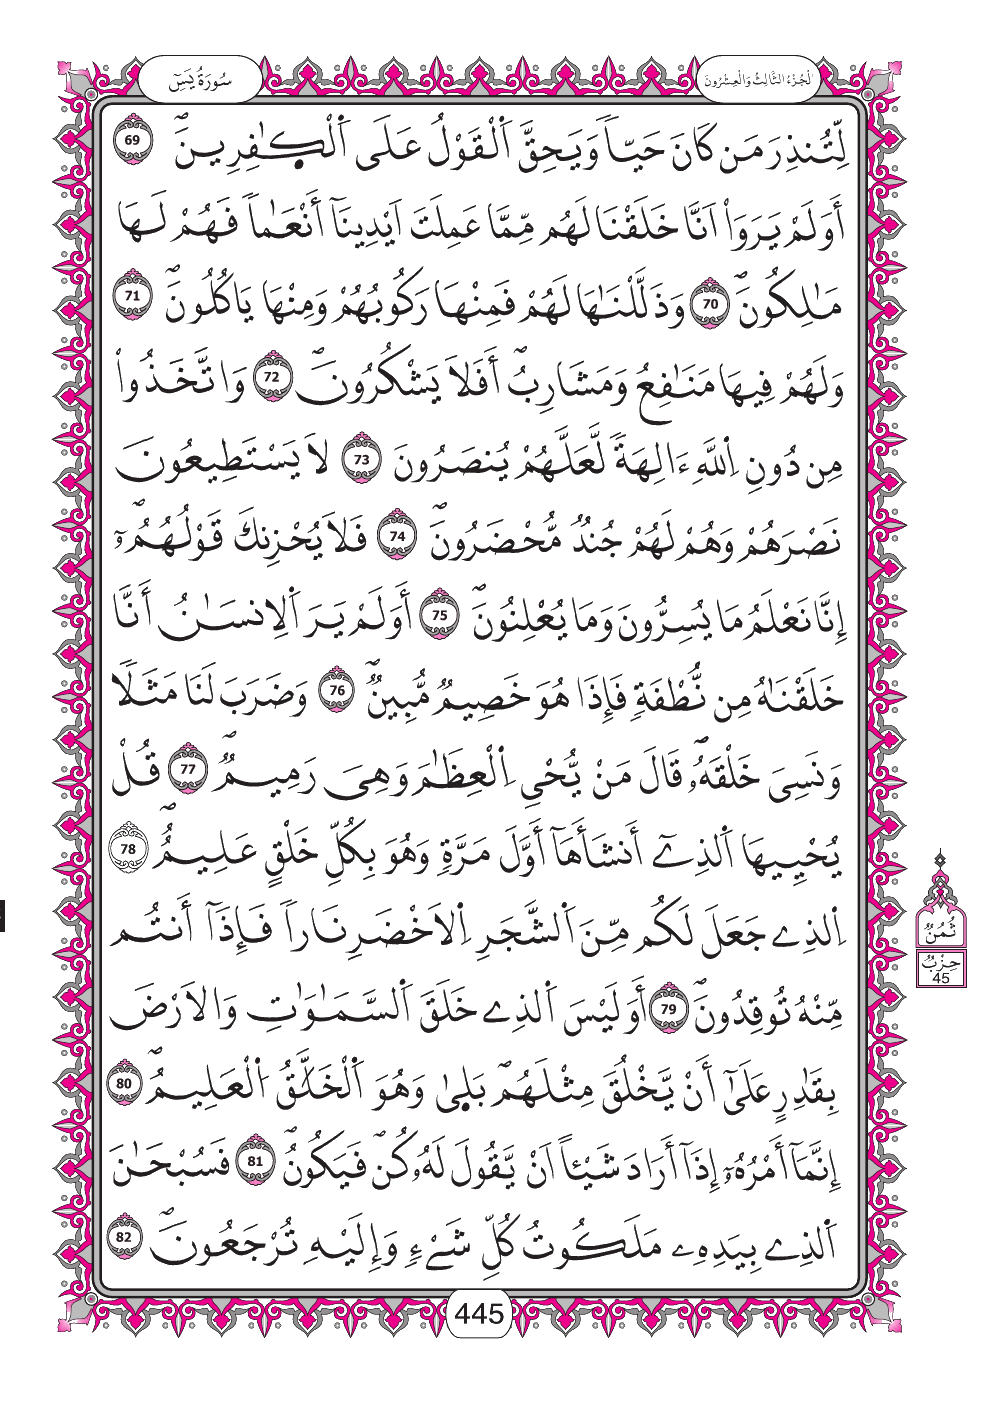 سُورَةُ يَسِٓ
اَلْجُزْءُ الثَّالِثُ وَالْعِشْرُونَ
لِّتُنذِرَ مَن كَانَ حَيّاٗ وَيَحِقَّ اَ۬لْقَوْلُ عَلَى اَ۬لْكٰ۪فِرِينَۖ 69
أَوَلَمْ يَرَوَاْ اَنَّا خَلَقْنَا لَهُم مِّمَّا عَمِلَتَ اَيْدِينَآ أَنْعَٰماٗ فَهُمْ لَهَا
مَٰلِكُونَۖ 70 وَذَلَّلْنَٰهَا لَهُمْ فَمِنْهَا رَكُوبُهُمْ وَمِنْهَا يَاكُلُونَۖ 71
وَلَهُمْ فِيهَا مَنَٰفِعُ وَمَشَارِبُۖ أَفَلَا يَشْكُرُونَۖ 72 وَاتَّخَذُواْ
مِن دُونِ اِ۬للَّهِ ءَالِهَةٗ لَّعَلَّهُمْ يُنصَرُونَ 73 لَا يَسْتَطِيعُونَ
نَصْرَهُمْ وَهُمْ لَهُمْ جُندٞ مُّحْضَرُونَۖ 74 فَلَا يُحْزِنكَ قَوْلُهُمُۥٓۖ
إِنَّا نَعْلَمُ مَا يُسِرُّونَ وَمَا يُعْلِنُونَۖ 75 أَوَلَمْ يَرَ اَ۬لِانسَٰنُ أَنَّا
خَلَقْنَٰهُ مِن نُّطْفَةٖ فَإِذَا هُوَ خَصِيمٞ مُّبِينٞۖ 76 وَضَرَبَ لَنَا مَثَلاٗ
وَنَسِيَ خَلْقَهُۥۖ قَالَ مَنْ يُّحْيِ اِ۬لْعِظَٰمَ وَهِيَ رَمِيمٞۖ 77 قُلْ
يُحْيِيهَا اَ۬لذِےٓ أَنشَأَهَآ أَوَّلَ مَرَّةٖ وَهُوَ بِكُلِّ خَلْقٍ عَلِيمٌۖ 78
اِ۬لذِے جَعَلَ لَكُم مِّنَ اَ۬لشَّجَرِ اِ۬لَاخْضَرِ نَاراٗ فَإِذَآ أَنتُم
مِّنْهُ تُوقِدُونَۖ 79 أَوَلَيْسَ اَ۬لذِے خَلَقَ اَ۬لسَّمَٰوَٰتِ وَالَارْضَ
بِقَٰدِرٍ عَلَيٰٓ أَنْ يَّخْلُقَ مِثْلَهُمۖ بَل۪يٰ وَهُوَ اَ۬لْخَلَّٰقُ اُ۬لْعَلِيمُۖ 80
إِنَّمَآ أَمْرُهُۥٓ إِذَآ أَرَادَ شَيْـٔاً اَنْ يَّقُولَ لَهُۥ كُنۖ فَيَكُونُۖ 81 فَسُبْحَٰنَ
اَ۬لذِے بِيَدِهِۦ مَلَكُوتُ كُلِّ شَےْءٖ وَإِلَيْهِ تُرْجَعُونَۖ 82
ثُمُنٌ
حِزْبٌ
45
445